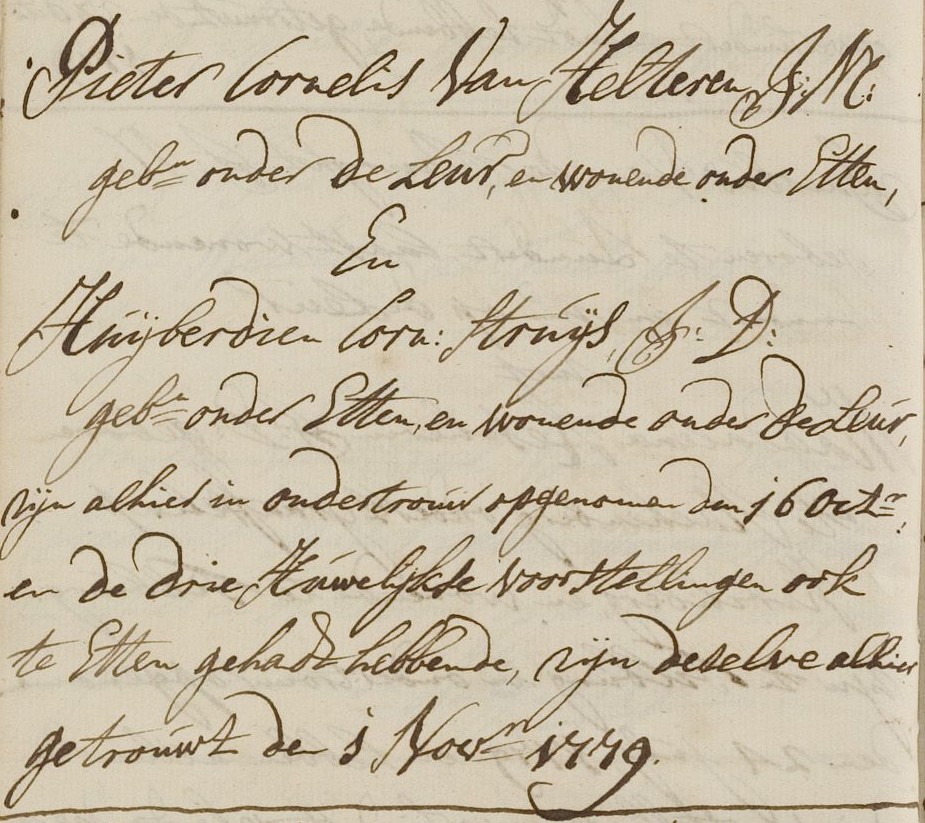 Pieter Cornelis Van Helteren J: M:
geb:n onder de Leur, en wonende onder Etten,
En
Huijberdien Corn: Struijs, J: D:
geb:n onder Etten, en wonende onder de Leur,
zijn alhier in ondertrouw opgenomen den 16 Octr:
en de drie Huwelijkse voorstellingen ook
te Etten gehadt hebbende, zijn deselve alhier
getrouwt den 1 Novr: 1779.